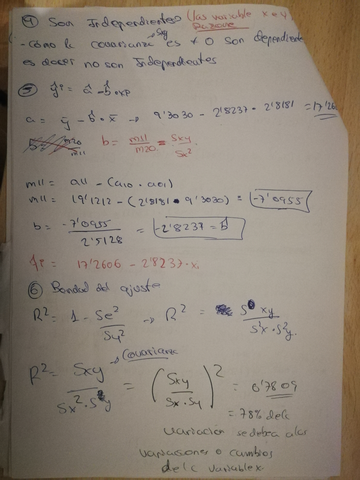 ④ Son Independientes (las variable x e y
Razone
- Cómo la covarianza es ≠ 0 son dependiente
Sxy
es decir no son Independientes
⑤ ŷi = â - b̂·xp
a = ȳ - b̂·x̄ → 9'3030 - 2'8237 · 2'8181 = 17'26
b = m11/m20 = Sxy/Sx²
m11 = a11 - (a10 · a01)
m11 = 19'1212 - (2'8181 · 9'3030) = -7'0955
b = -7'0955/2'5128 = -2'8237 = b̂
ŷi = 17'2606 - 2'8237·xi
⑥ Bondad del ajuste
R² = 1 - Se²/Sy² → R² = S²xy/S²x·S²y
R² = Sxy/Sx²·S²y = (Sxy/Sx·Sy)² = 0'7809
Covarianza
= 78% de la
variación se debe a las
variaciones o cambios
de la variable x.